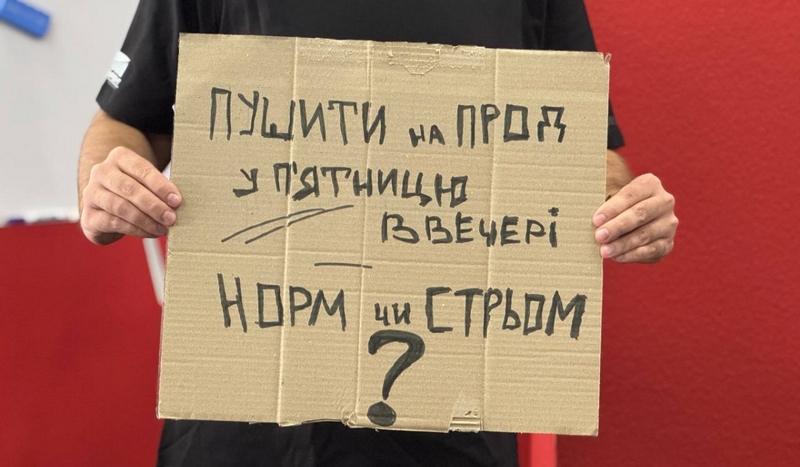 ПУШИТИ НА ПРОД
У П'ЯТНИЦЮ
ВВЕЧЕРІ
—
НОРМ ЧИ СТРЬОМ
?